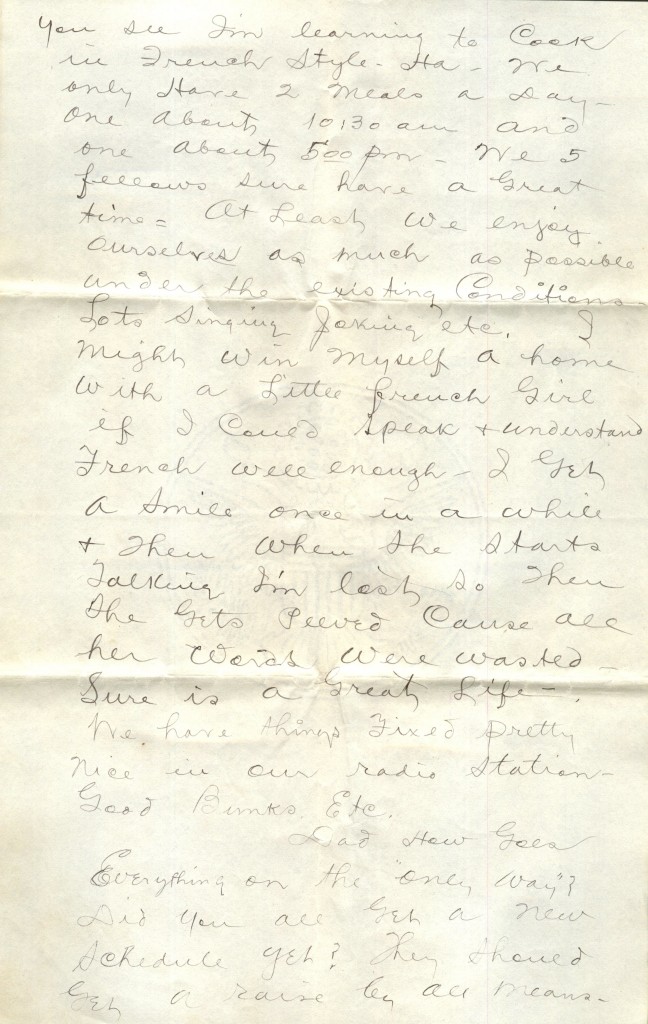 You see I'm learning to Cook
in French Style - Ha - We
only Have 2 Meals a Day -
one About 10:30 am and
one About 5:00 pm - We 5
fellows sure have a Great
time = At Least we enjoy
ourselves as much as possible
under the existing Conditions -
Lots Singing Joking etc. I
Might win Myself a home
with a Little french Girl
if I Could speak + understand
French well enough - I Get
a smile once in a while
+ Then when she starts
Talking I'm lost so Then
she Gets Peeved Cause all
her words were wasted -
Sure is a Great Life -.
We have things Fixed pretty
Nice in our radio Station -
Good Bunks Etc.
Dad How Goes
Everything on the "only Way"?
Did You all Get a New
Schedule yet? They should
Get a raise by all means -